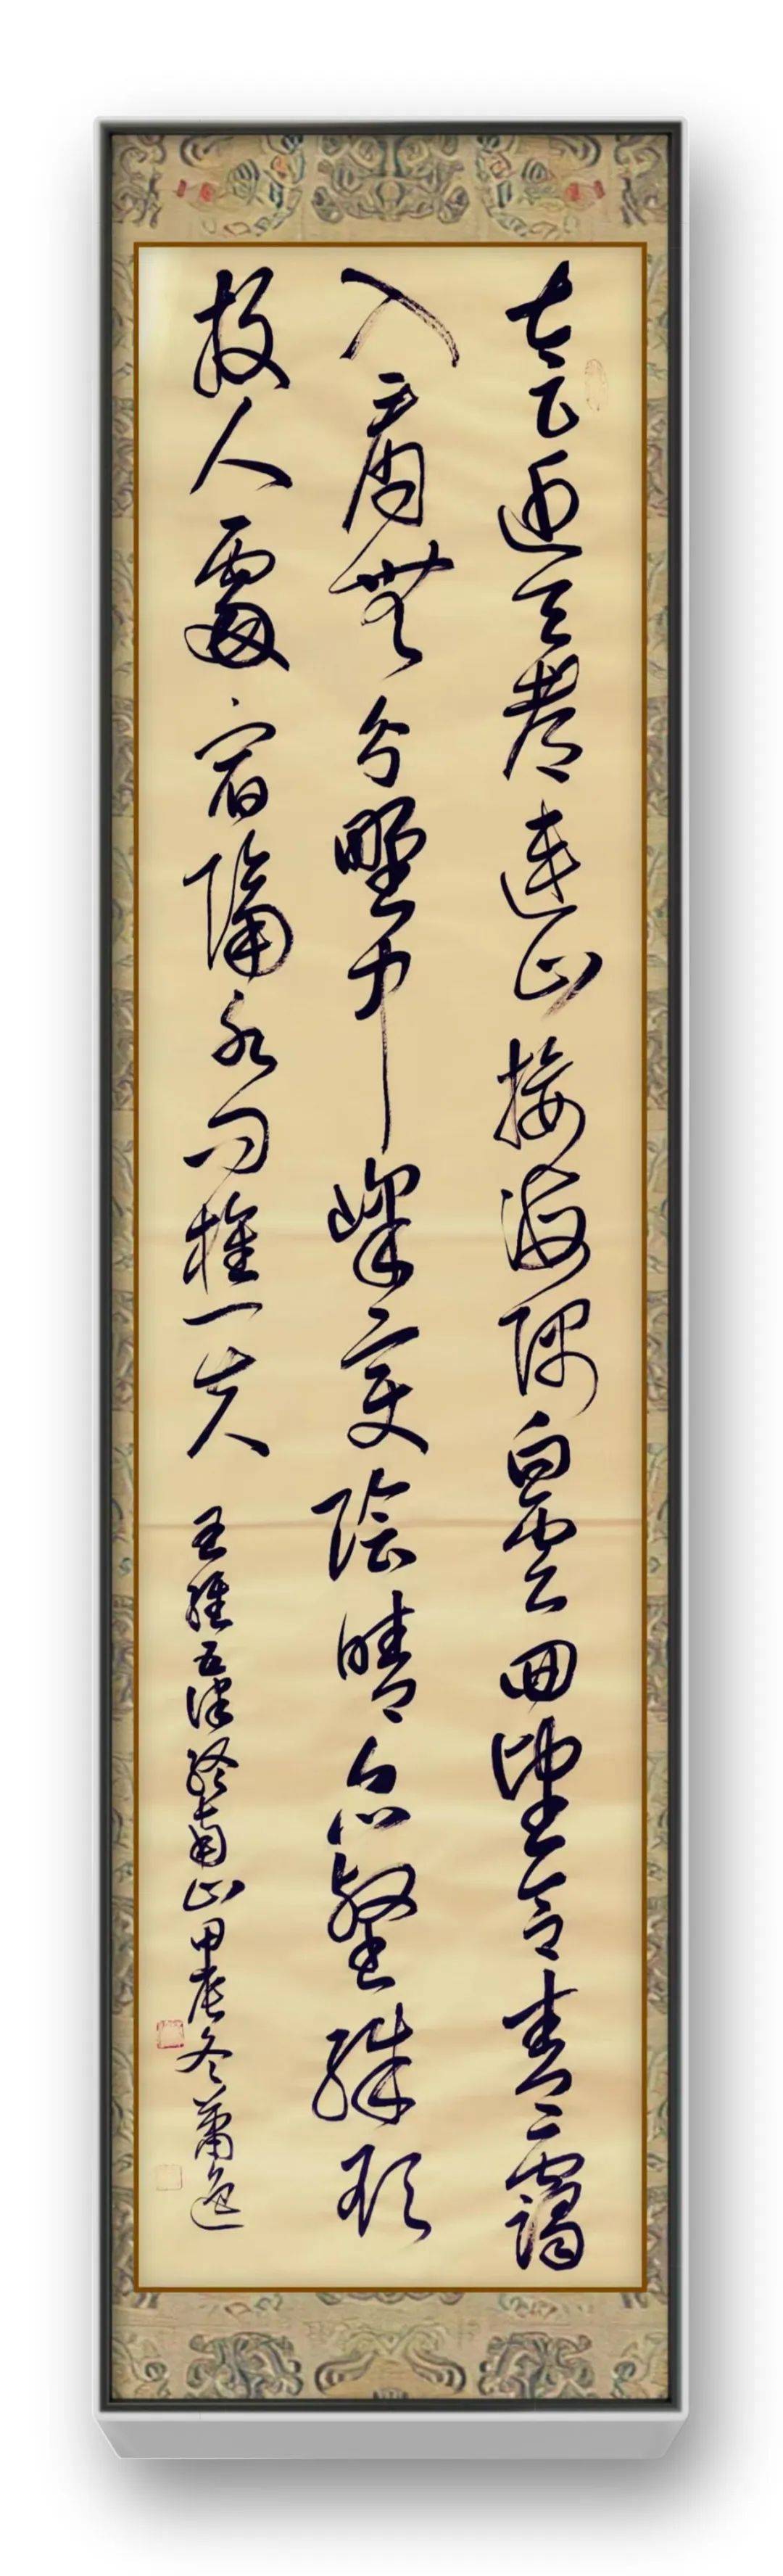 太乙近天都連山接海隅白雲回望合青靄
入看無分野中峰變陰晴眾壑殊欲
投人處宿隔水問樵夫 王維五律終南山甲辰冬蕭逸